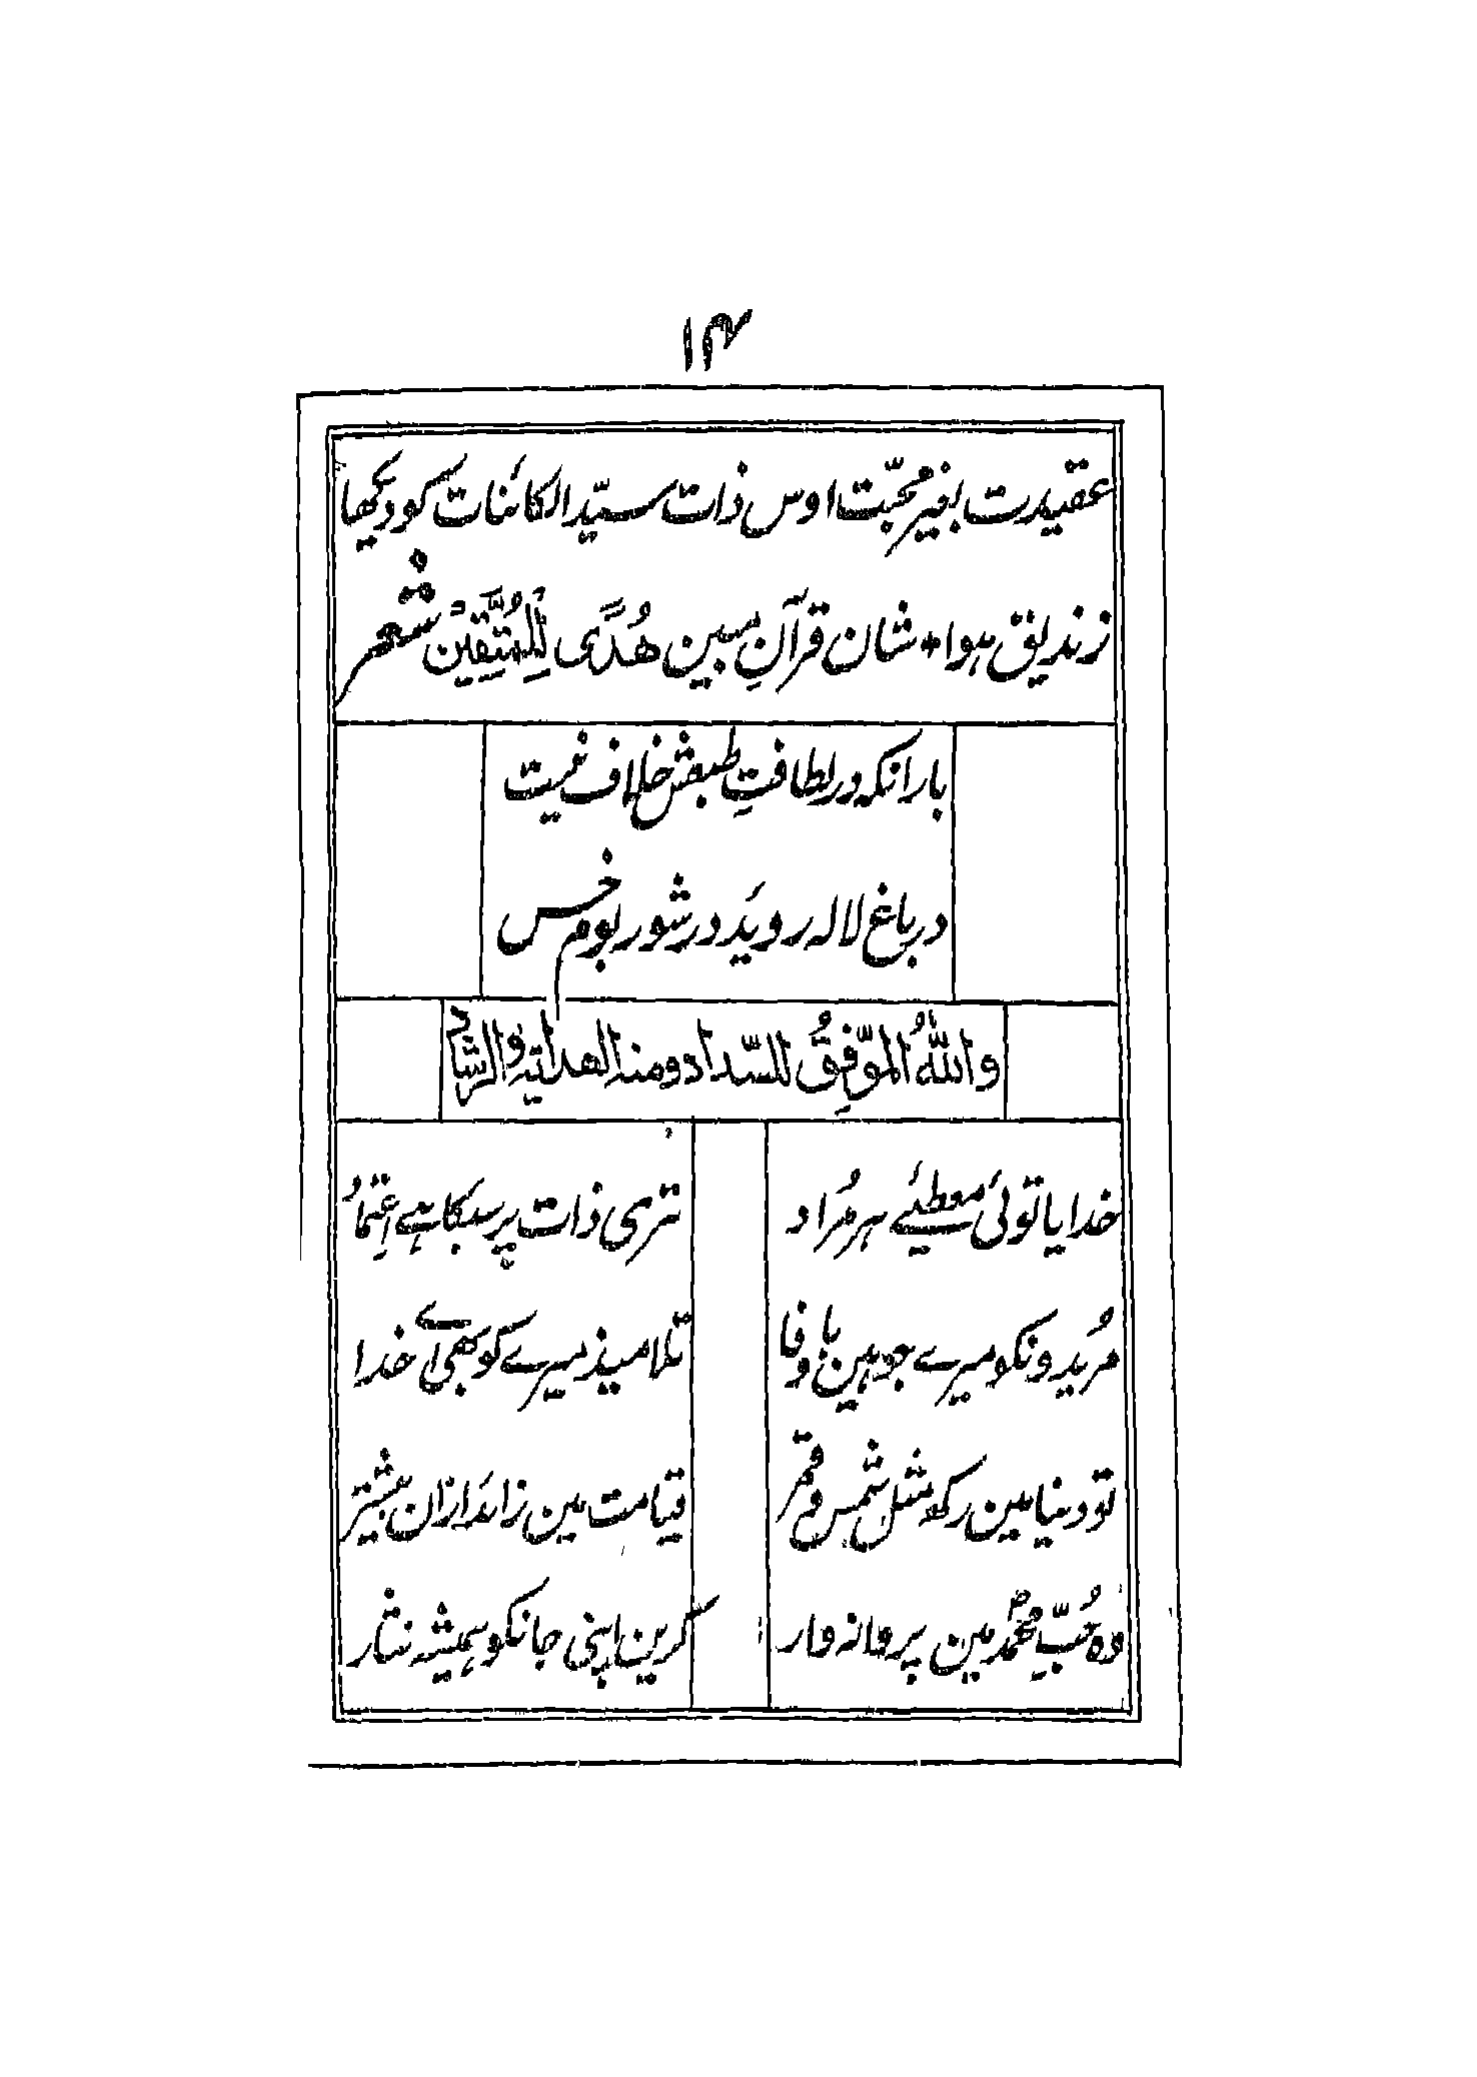 ۱۴
عقیدت بغیر محبّت اوس ذات سیّد الکائنات کو دیکھا
زندیق ہوا * شان قرآنِ مبین ھُدًی لِلْمُتَّقِیْنَ شعر
بارانکہ در لطافتِ طبعش خلاف نیست
در باغ لالہ رویَد در شور بوم خس
واللهُ الموَّفِقُ للسّداد ومنه الهدایته والرشاد
خدایا توئی معطیٔے ہر مُراد
تری ذات پر سبکا ہے اِعتماد
مُریدونکو میرے جو ہین با وفا
تلامیذ میرے کو بھی اَے خدا
تو دنیا مین رکھ مثل شمس و قمر
قیامت مین زاندازان بیشتر
وہ حُبِّ محمدؐ مین پروانہ وار
کرین اپنی جانکو ہمیشہ نثار